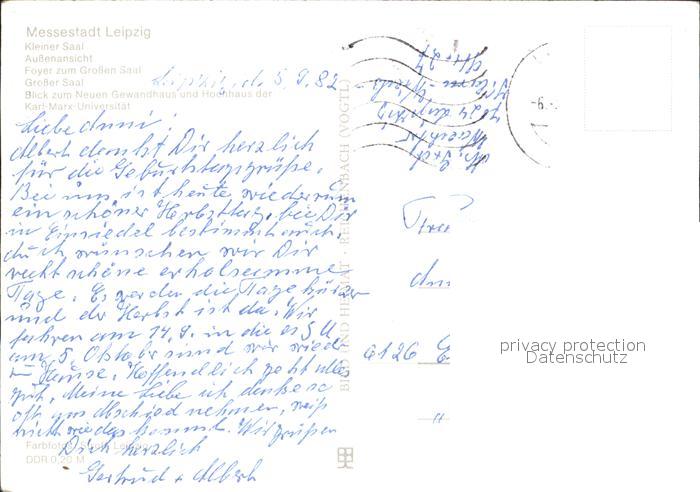 Messestadt Leipzig
Kleiner Saal
Außenansicht
Foyer zum Großen Saal
Großer Saal
Blick zum Neuen Gewandhaus und Hochhaus der
Karl-Marx-Universität
Leipzig, d. 5.9.82
Liebe Anni!
Albert dankt Dir herzlich
für die Geburtstagsgrüße.
Bei uns ist heute wiederum
ein schöner Herbsttag, bei Dir
in Einsiedel bestimmt auch.
Auch wünschen wir Dir
recht schöne erholsamme
Tage. Es werden die Tage kürzer
und der Herbst ist da. Wir
fahren am 14.9. in die
am 5. Oktober sind wir wieder
Hause. Hoffendlich geht alles
gut, Meine Liebe ich denke so
oft ans Abschied nehmen, weiß
nicht wie das kommt. Wir grüßen
Dich herzlich
Gertrud + Albert
Farbfotos:
DDR 0,20 M
BILD UND HEIMAT · REICHENBACH (VOGTL)
-6.
Frau
An
9126 E
privacy protection
Datenschutz